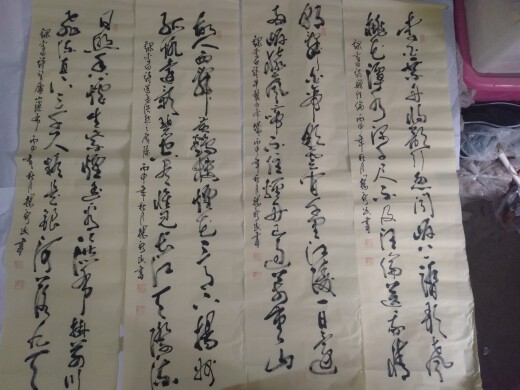 李白乘舟将欲行忽闻岸上踏歌声
桃花潭水深千尺不及汪伦送我情
录李白诗赠汪伦 丙申年秋月 书
朝辞白帝彩云间千里江陵一日还
两岸猿声啼不住轻舟已过万重山
录李白诗早发白帝城 丙申年秋月 书
故人西辞黄鹤楼烟花三月下扬州
孤帆远影碧空尽唯见长江天际流
录李白诗送孟浩然之广陵 丙申年秋月 书
日照香炉生紫烟遥看瀑布挂前川
飞流直下三千尺疑是银河落九天
录李白诗望庐山瀑布 丙申年秋月 书